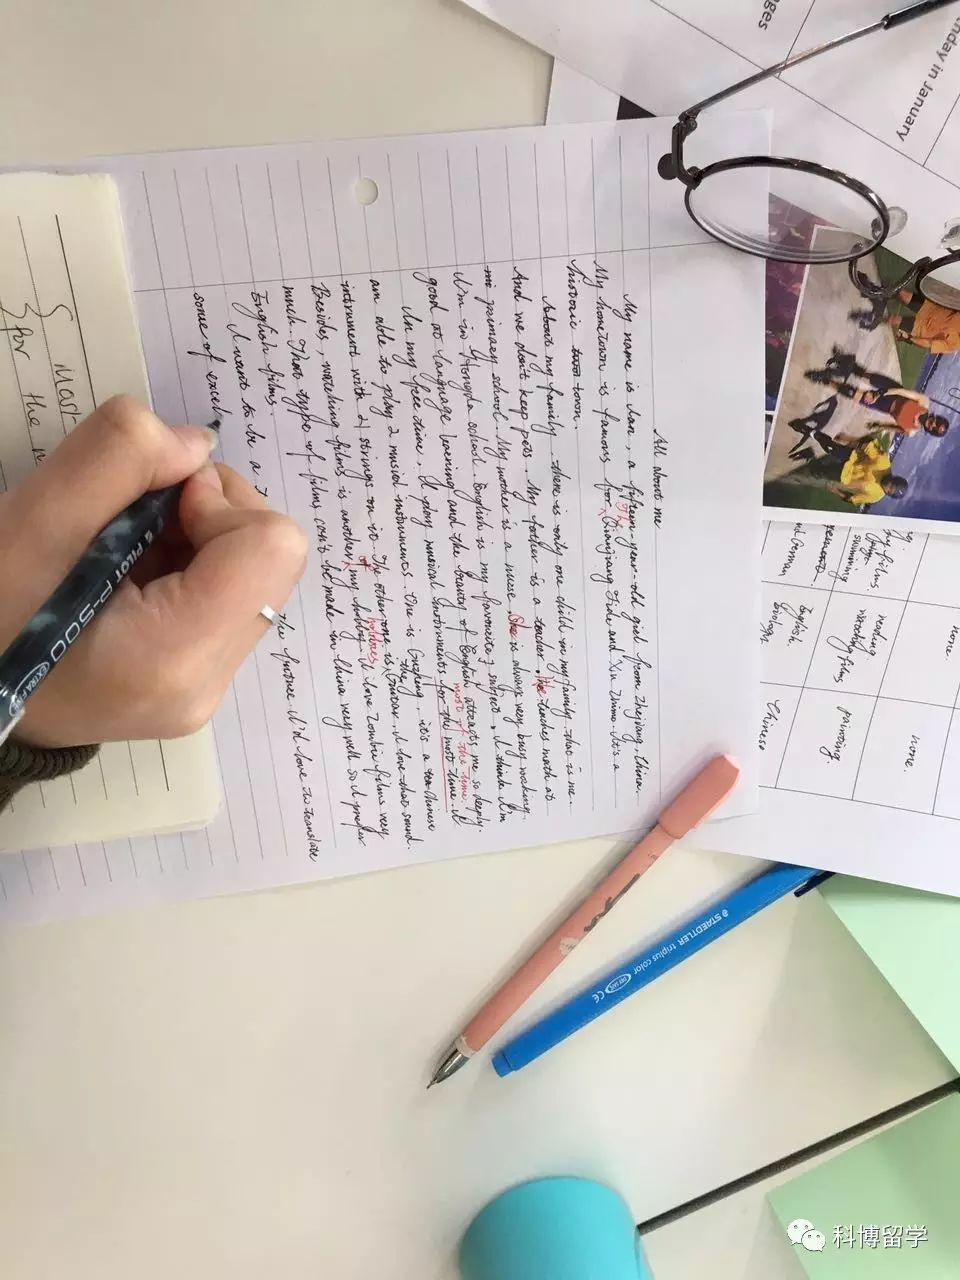 All About me
My name is Ivan, a fifteen-year-old girl from Zhejiang, China.
My hometown is famous for the Qianjiang Tide and Xu Zhimo. It's a
historic town town.
About my family, there is only one child in my family that is me.
And we don't keep pets. My father is a teacher, He teaches math at
primary school. My mother is a nurse. She is always very busy working.
I'm in Hongda school. English is my favourite subject, I think I'm
good at language learning and the beauty of English attracts me so deeply.
most of the time.
In my free time, I play musical instruments for the most time. I
am able to play 2 musical instruments. One is Guzheng, it's a Chinese
instrument with 21 strings on it. The other one is the Guitar. I love that sound.
of hobbies
Besides, watching films is another my hobby. I love Zombie films very
much. That type of films can't be made in China very well so I prefer
English films.
I want to be a the future. I'd love to translate
some of excel
Most
for the
PILOT P-500 EXTRA FINE
STAEDTLER triplus color
DRY SAFE CE
nges
nday in January
films,
swimming
reading
watching films
painting
none.
none.
German
English,
biology
Chinese
科博留学